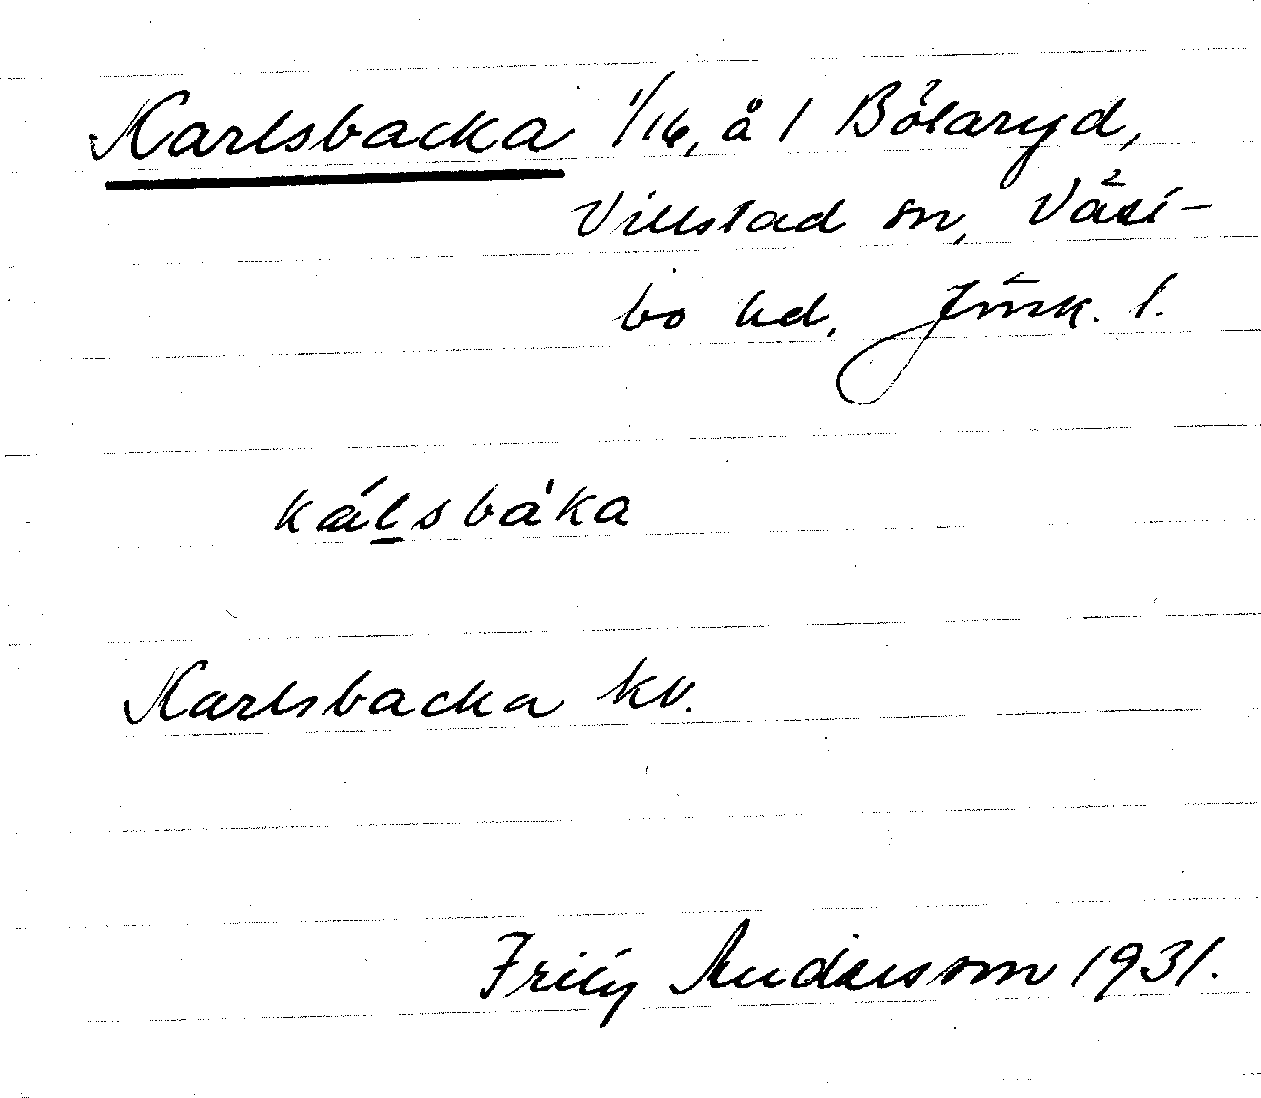 Karlsbacka 1/16, å 1 Bölaryd,
Villstad sn, Väst-
bo hd, Jönk. l.
kálsbàka
Karlsbacka kv.
Frity Andersson 1931.